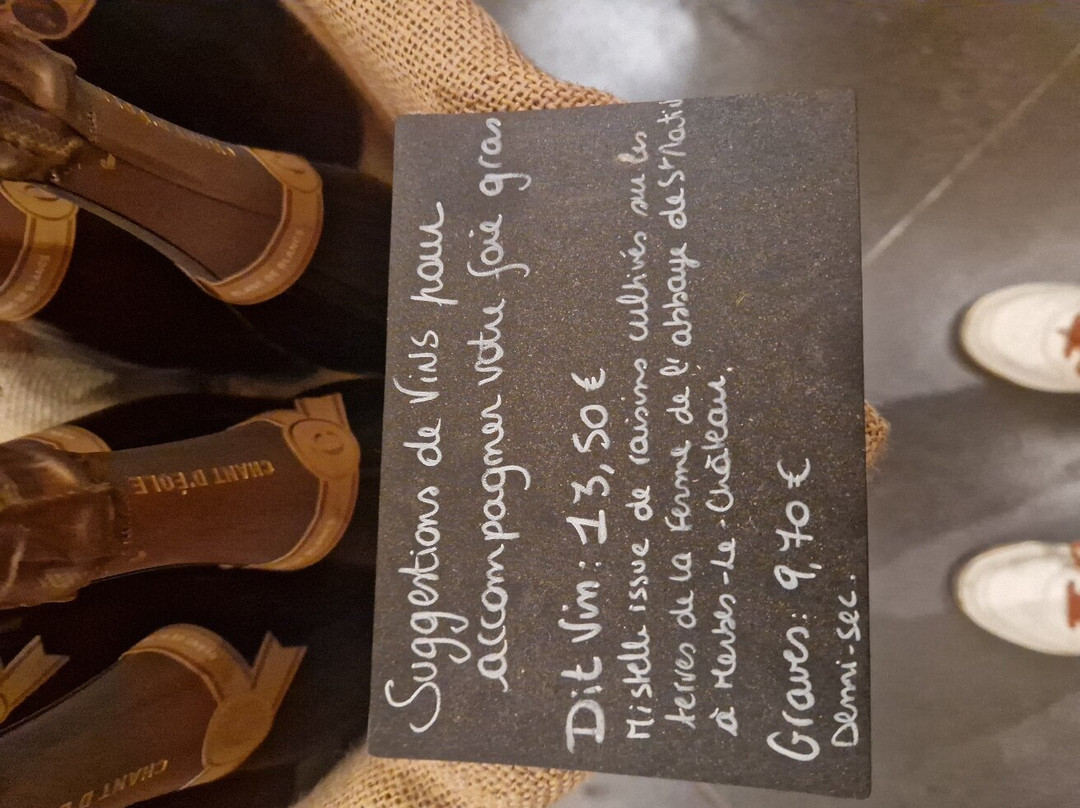 Suggestions de Vins pour
accompagner votre foie gras
Dit Vin : 13,50 €
Mistelle issue de raisins cultivés sur les
terres de la Ferme de l'abbaye de St Nativ
à Merbes-le-Château.
Graves : 9,70 €
Demi-sec.
CHANT D'ÉOLE
CHANT D'É
BLANC DE BLANCS